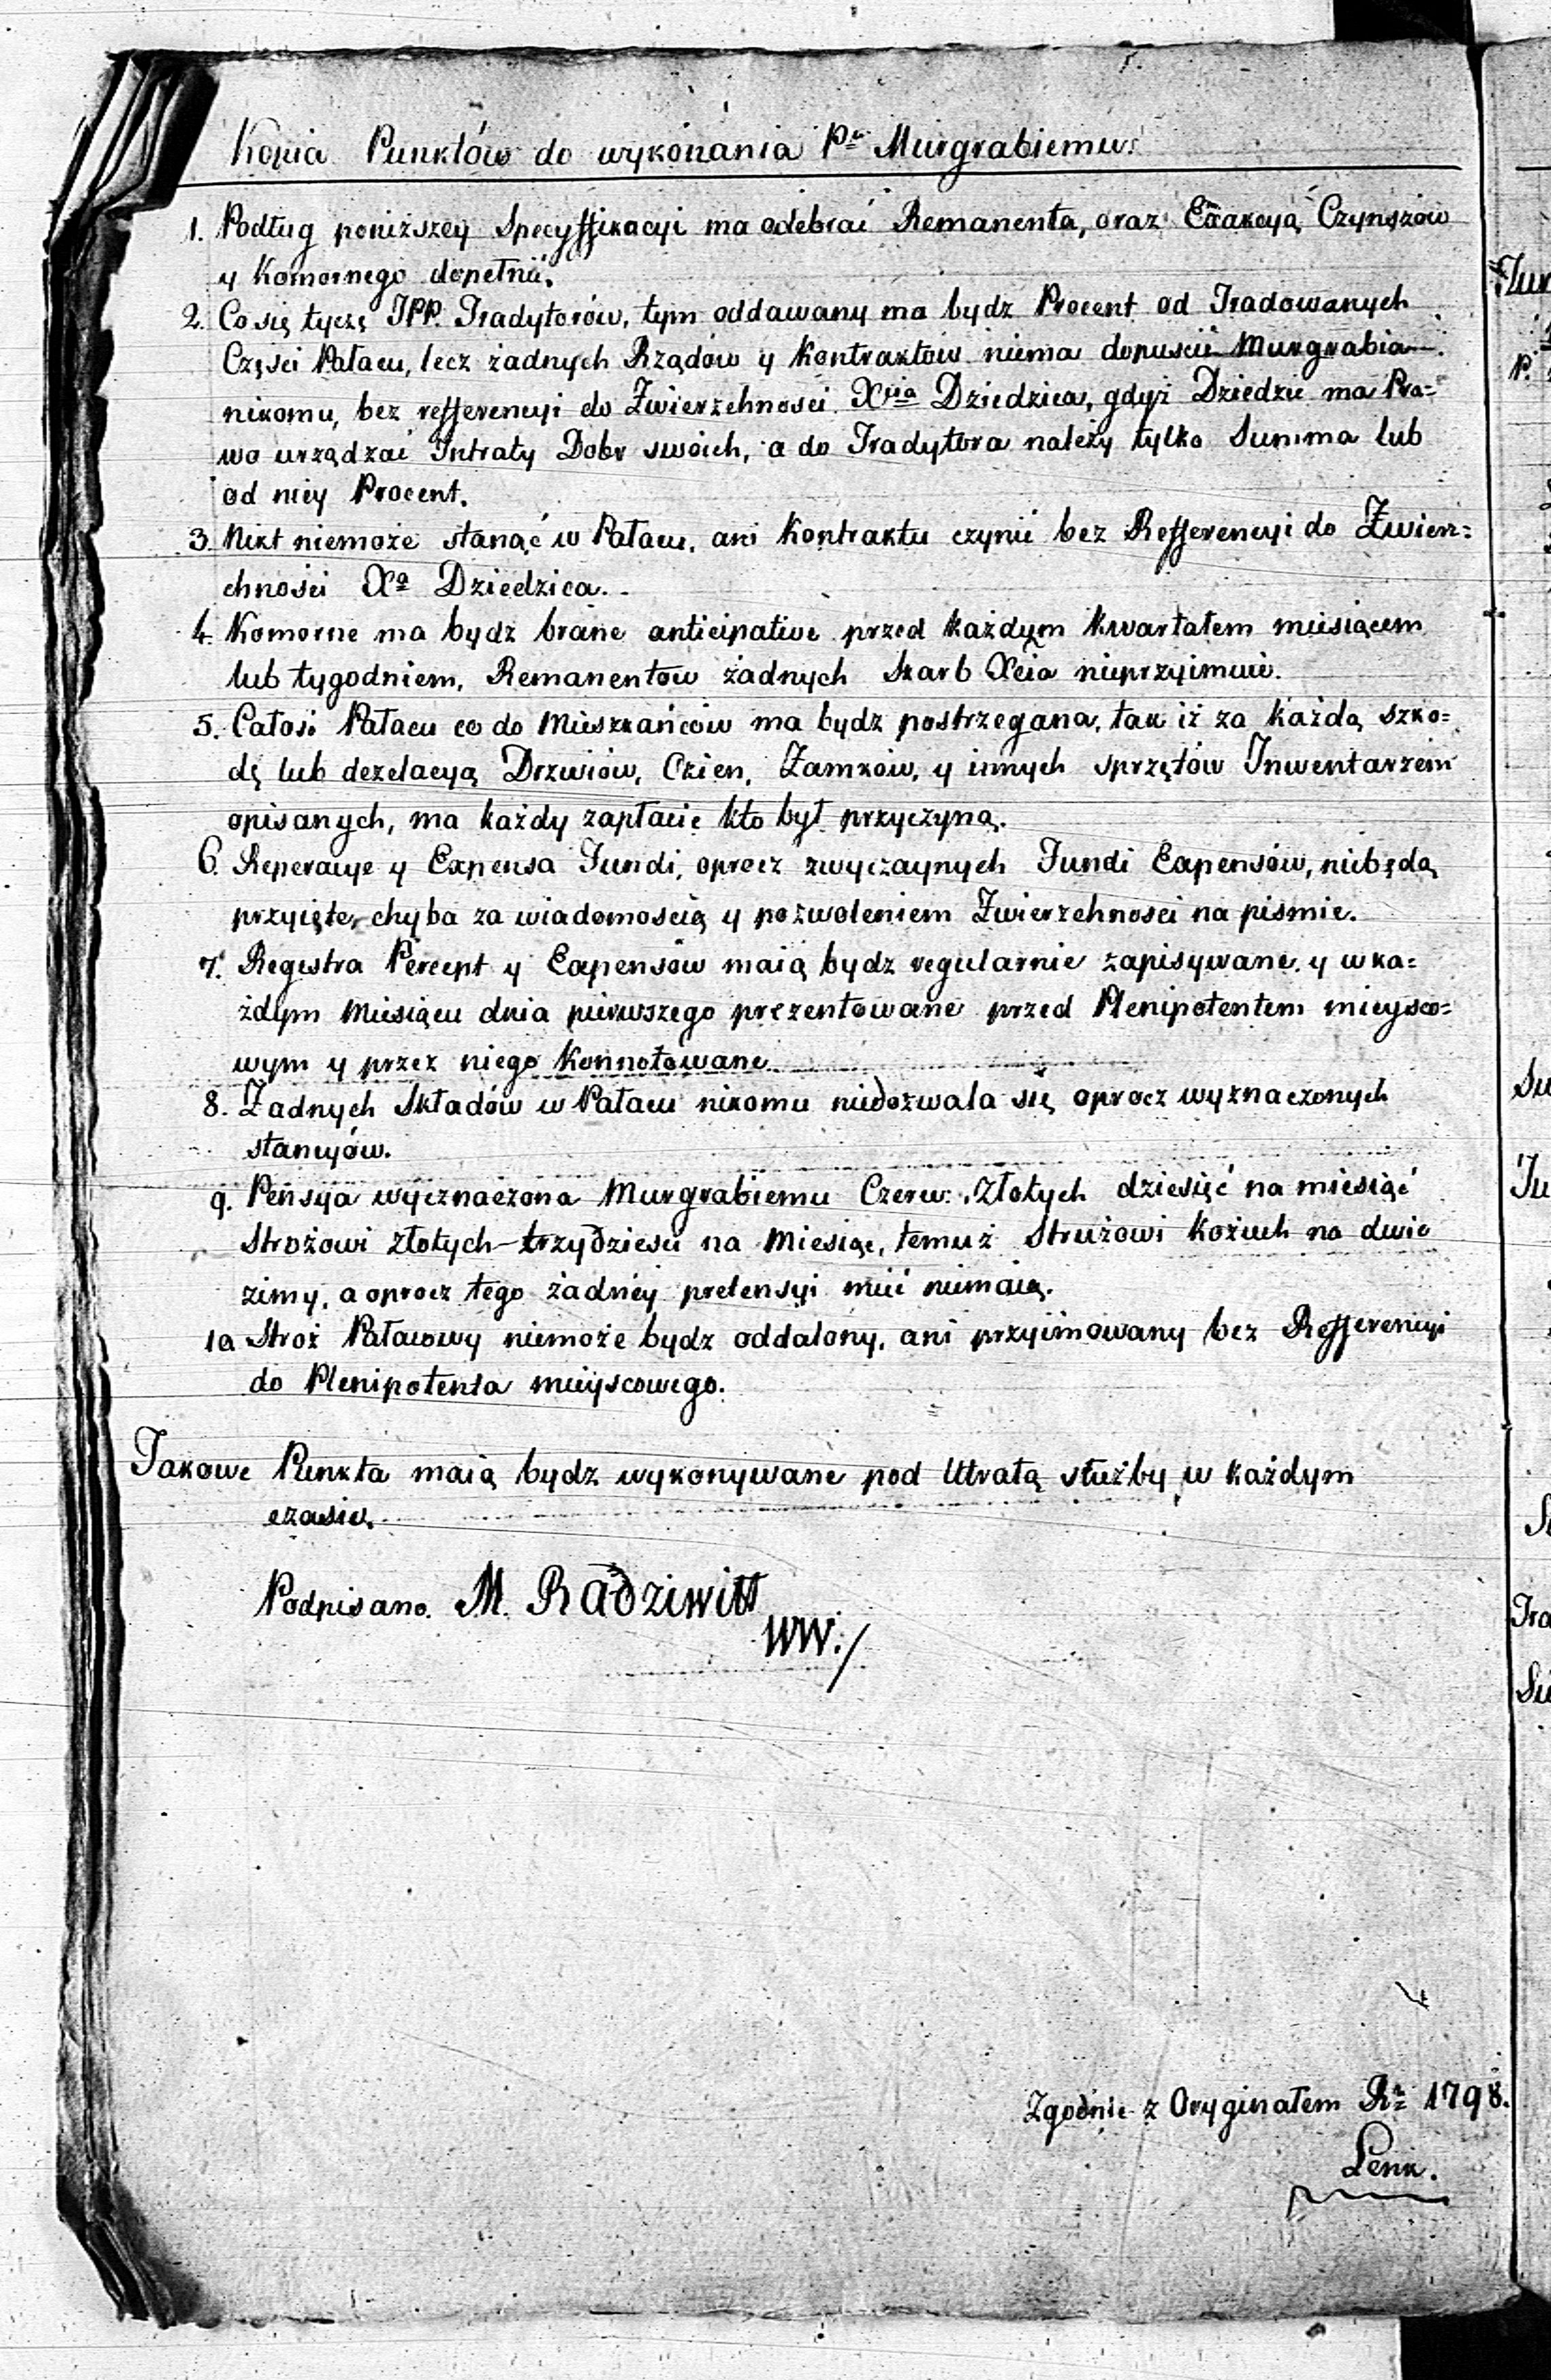 Kopia Punktów do wykónánia Pu Murgrabiemu:
1. Podług poniższey Specyffikacyi ma odebrać Remanenta, oraz Exakcyą Czynszów
y Komornego dopełnić.
2. Co się tyczę JPP. Tradytorów, tym oddawany ma bydz Procent od Tradowanych
Części Pałacu, lecz żadnych Rządów y Kontraktów niema dopuścić Murgrabia
nikomu, bez refferencyi do Zwierzchności Xcia Dziedzica, gdyż Dziedzic ma Pra=
wo urządzać Intraty Dobr swoich, a do Tradytora należy tylko Summa lub
od niey Procent.
3. Nikt niemoże stanąć w Pałacu, ani Kontraktu czynić bez Refferencyi do Zwierz=
chności Xa Dziedzica.
4. Komorne ma bydź brane anticipative przed każdym kwartałem miesiącem
lub tygodniem, Remanentów żadnych Skarb Xcia nieprzyimuie.
5. Całość Pałacu co do Mieszkańców ma bydz postrzegana, tak iż za każdą szko=
dę lub dezelacyą Drzwiów, Okien, Zamków, y innych sprzętów Inwentarzem
opisanych, ma każdy zapłacić kto był przyczyną.
6. Reperacye y Expensa Fundi, oprocz zwyczaynych Fundi Expensów, niebędą
przyięte, chyba za wiadomością y pozwoleniem Zwierzchności na pismie.
7. Regestra Percept y Expensów maią bydz regularnie zapisywane, y w ka=
żdym Miesiącu dnia pierwszego prezentowane przed Plenipotentem mieysco=
wym y przez niego konnotowane.
8. Żadnych Składów w Pałacu nikomu niedozwala się oprocz wyznaczonych
stancyów.
9. Pensya wyznaczona Murgrabiemu Czerw: Złotych dziesięć na miesiąć
Strożowi złotych trzydzieści na Miesiąc, temuż Strużowi kożuch na dwie
zimy, a oprocz tego żadney pretensyi mieć niemaią.
10 Stroż Pałacowy niemoże bydz oddalony, ani przyimowany bez Refferencyi
do Plenipotenta mieyscowego.
Takowe Punkta maią bydz wykonywane pod Utratą służby w każdym
czasie.
Podpisano. M. Radziwiłł
WW:/
Zgodnie z Oryginałem Ru 1798.
Lenk.